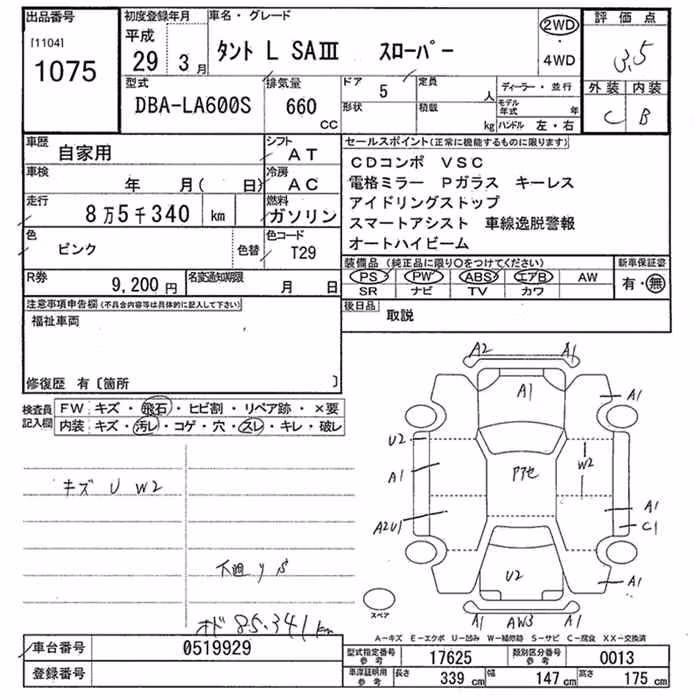 出品番号
[1104]
1075
初度登録年月
平成
29 3月
車名・グレード
タント L SAⅢ スローパー
2WD
・
4WD
評価点
3.5
外装 内装
C B
型式
DBA-LA600S
排気量
660
CC
ドア 5
形状
定員 人
積載 kg
ディーラー・並行
モデル年式 年
ハンドル 左・右
車歴
自家用
シフト
AT
車検
年 月( 日)
冷房
AC
走行
8万5千340 km
燃料
ガソリン
色
ピンク
色替
色コード
T29
R券
9,200円
名変通知期限
月 日
セールスポイント(正常に機能するものに限ります)
CDコンポ VSC
電格ミラー Pガラス キーレス
アイドリングストップ
スマートアシスト 車線逸脱警報
オートハイビーム
装備品(純正品に限り○をつけてください)
PS PW ABS エアB AW
SR ナビ TV カワ
新車保証書
有・無
注意事項申告欄(不具合内容等は具体的に記入して下さい)
福祉車両
修復歴 有〔箇所 〕
後日品
取説
検査員
記入欄
FW キズ・飛石・ヒビ割・リペア跡・×要
内装 キズ・汚レ・コゲ・穴・スレ・キレ・破レ
キズ U W2
下廻りS
オド 85.341km
A2 A1
A1
A1
U2
A1
W2
A1
A2U1
C1
U2
A1
A1 AW3 A1
スペア
A-キズ E-エクボ U-凹み W-補修跡 S-サビ C-腐食 XX-交換済
車台番号
0519929
登録番号
型式指定番号
参考
17625
類別区分番号
参考
0013
車庫証明用
参考
長さ
339 cm
幅
147 cm
高さ
175 cm